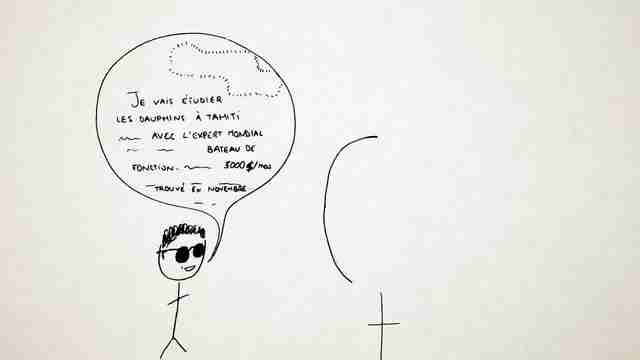 JE VAIS ÉTUDIER
LES DAUPHINS À TAHITI
AVEC L'EXPERT MONDIAL
BATEAU DE
FONCTION. 5000 $/MOIS
TROUVÉ EN NOVEMBRE